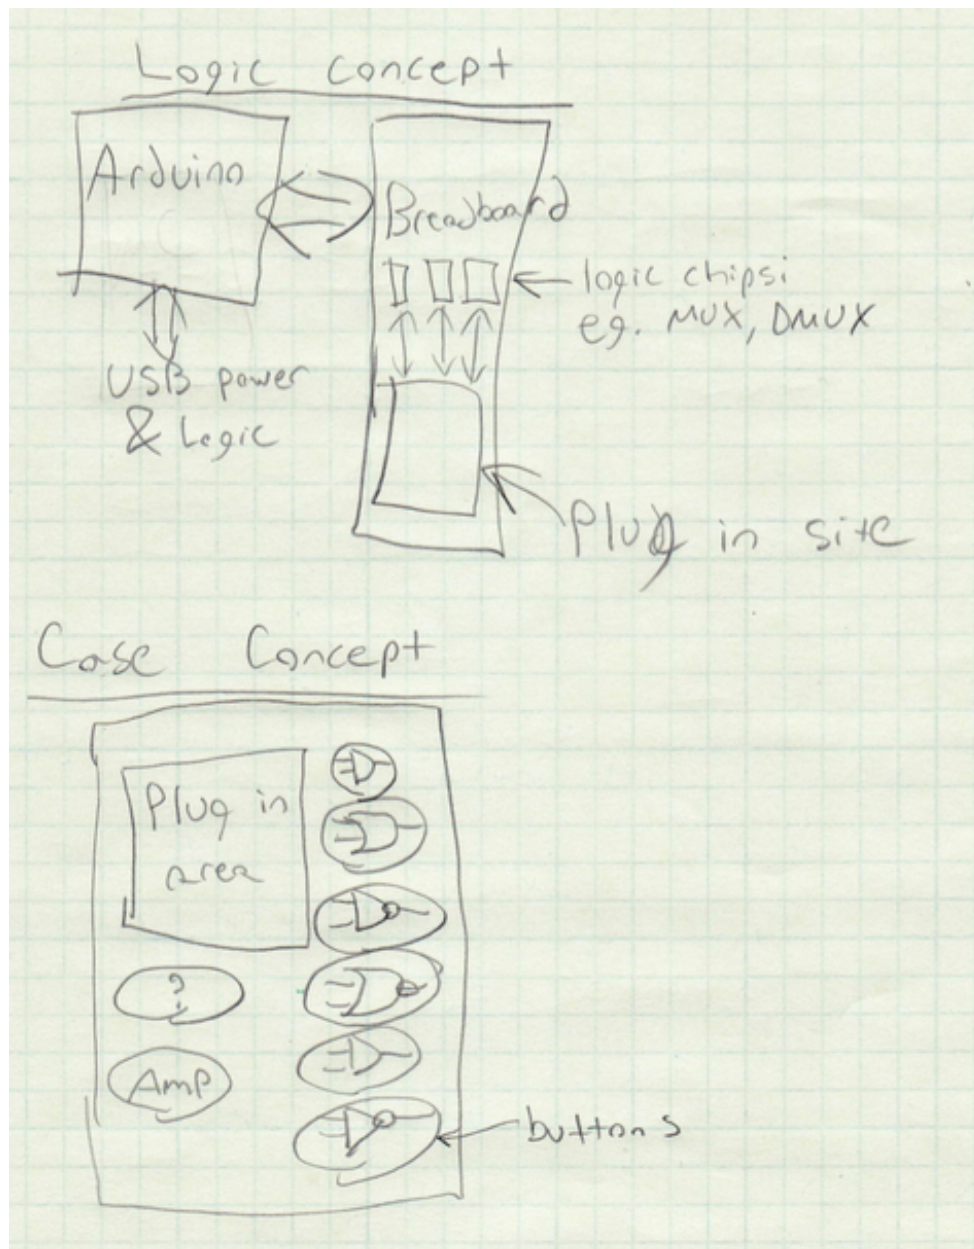 Logic Concept
Arduino
Breadboard
logic chips;
eg. MUX, DMUX
USB power
& Logic
Plug in site
Case Concept
Plug in
area
?
Amp
buttons